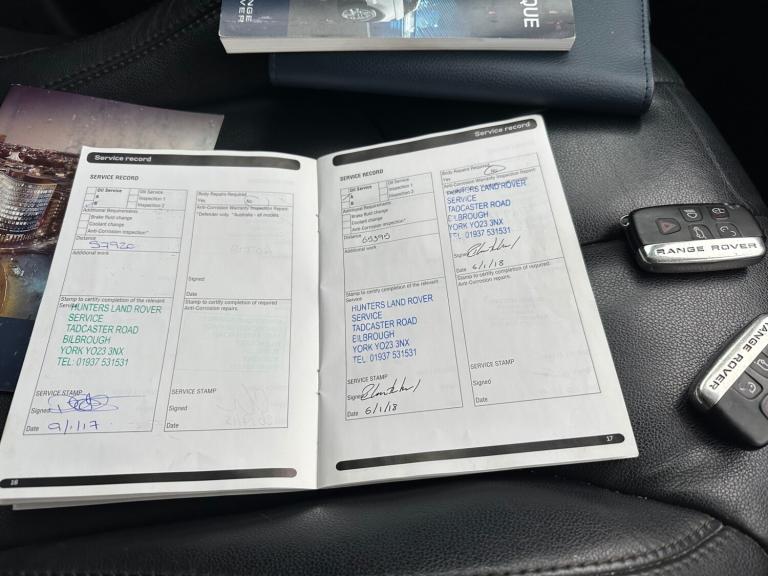 QUE
Service record
SERVICE RECORD
Oil Service
Oil Service
A
Inspection 1
B
Inspection 2
Additional Requirements
Brake fluid change
Coolant change
Anti-Corrosion inspection*
Distance
57920
Additional work
Stamp to certify completion of the relevant
Service
HUNTERS LAND ROVER
SERVICE
TADCASTER ROAD
BILBROUGH
YORK YO23 3NX
TEL: 01937 531531
SERVICE STAMP
Signed
Date 9/1/17
16
Body Repairs Required
Yes No
Anti-Corrosion Warranty Inspection Report
*Defender only. *Australia - all models
Signed
Date
Stamp to certify completion of required
Anti-Corrosion repairs.
SERVICE STAMP
Signed
Date
Service record
SERVICE RECORD
Oil Service
Oil Service
A
Inspection 1
B
Inspection 2
Additional Requirements
Brake fluid change
Coolant change
Anti-Corrosion inspection*
Distance
Additional work
Stamp to certify completion of the relevant
Service
HUNTERS LAND ROVER
SERVICE
TADCASTER ROAD
BILBROUGH
YORK YO23 3NX
TEL: 01937 531531
SERVICE STAMP
Signed
Date 6/1/18
Body Repairs Required
Yes No
Anti-Corrosion Warranty Inspection Report
HUNTERS LAND ROVER
SERVICE
TADCASTER ROAD
BILBROUGH
YORK YO23 3NX
TEL: 01937 531531
Signed
Date 6/1/18
Stamp to certify completion of required
Anti-Corrosion repairs.
SERVICE STAMP
Signed
Date
17
RANGE ROVER
RANGE ROVER